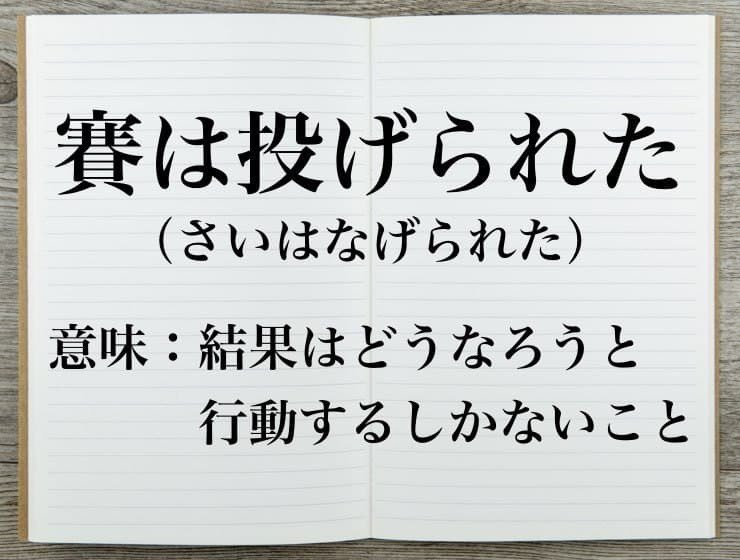 賽は投げられた
（さいはなげられた）
意味：結果はどうなろうと
行動するしかないこと